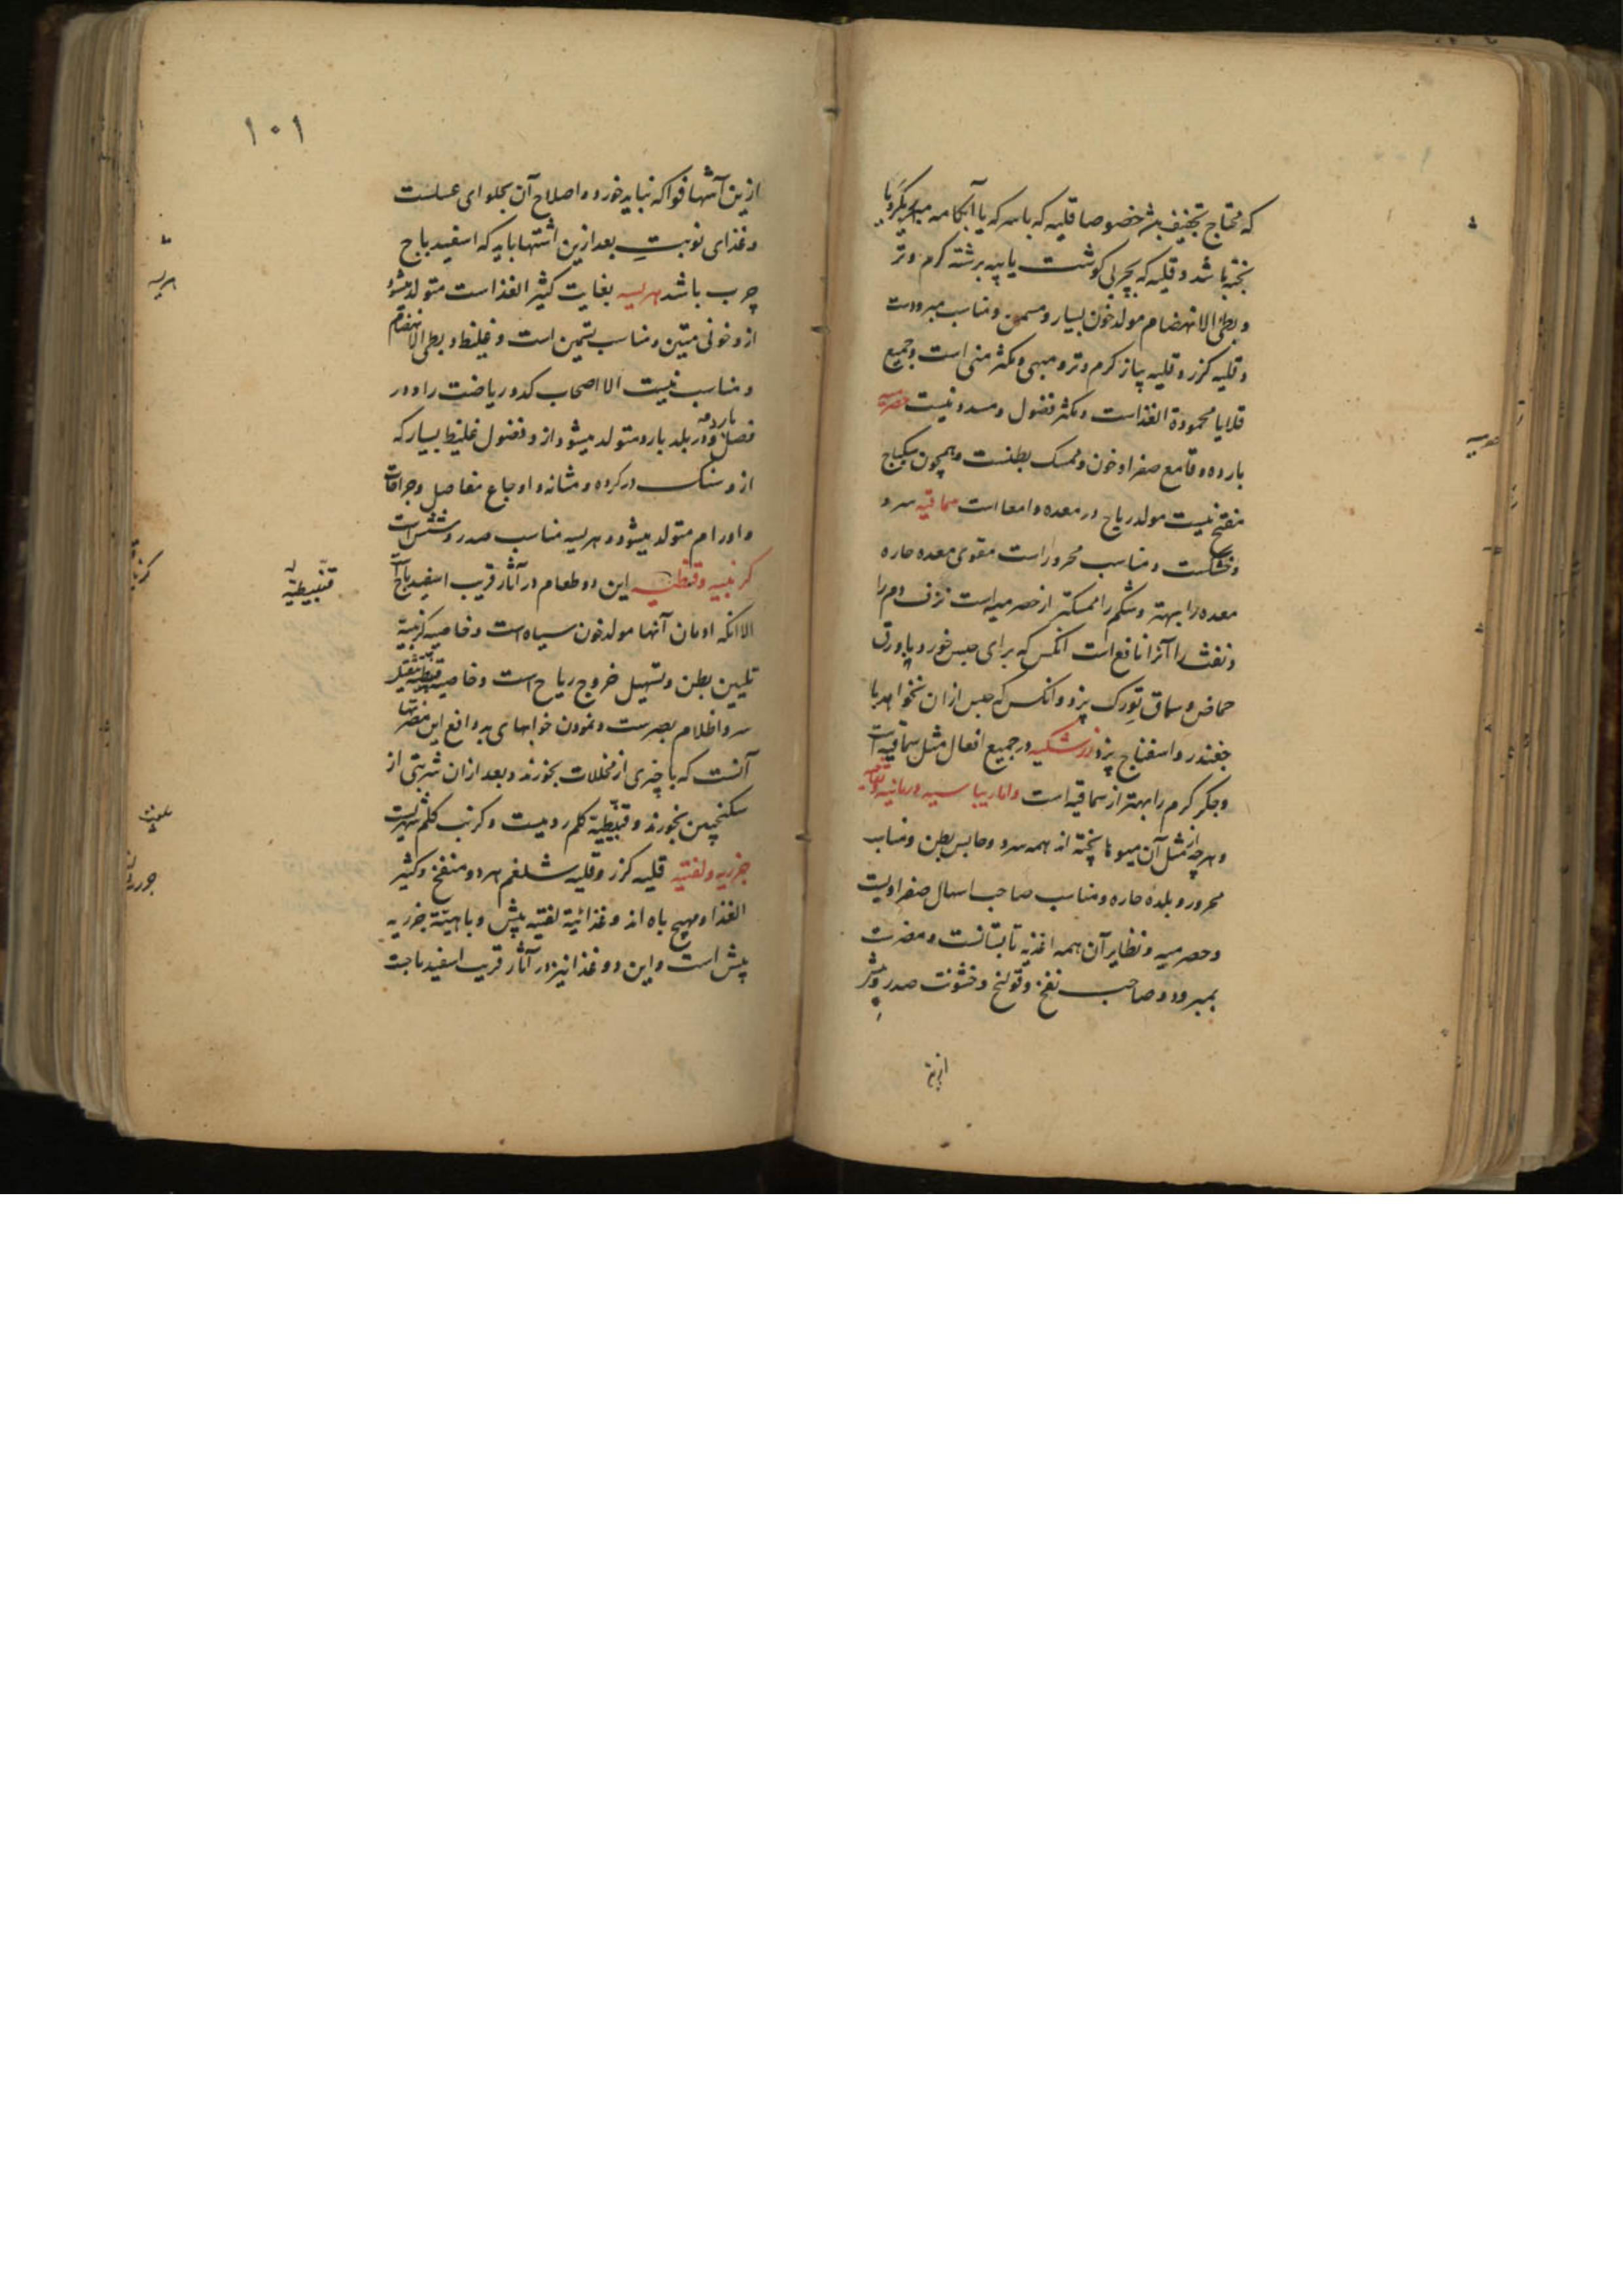 که محتاج تجفیف باشد خصوصا قلیه که با سرکه یا آبکامه
پخته باشد و قلیه که بچربی گوشت یا پیه برشته کرم و تر
و بطی الانهضام مولد خون بسیار و مسمن و مناسب مبرودست
و قلیه کزر و قلیه پیاز کرم و تر و مبهی و مکثر منی است و جمیع
قلایا محمودة الغذاست و مکثر فضول و مسدد نیست حصرمیه
بارده و قامع صفرا و خون و ممسک بطنست و همچون سکباج
منفتح نیست مولد ریاح در معده و امعا است سماقیه سرد
و خشکست و مناسب محرور است مقوی معده حاره
معده را بهتر و شکم را ممسکتر از حصرمیه است نزف دم را
و نفث را آنرا نافع است انکس که برای حبس خورد با ورق
حماض و سماق تورک پزد و انکس که حبس ازان نخواهد با
چغندر و اسفناج پزد زرشکیه در جمیع افعال مثل سماقیه است
و جکر کرم را بهتر از سماقیه است و اما ریباسیه و رمانیه و تفاحیه
و هرچه از مثل آن میوها پخته اند همه سرد و حابس بطن و مناسب
محرور و بلده حاره و مناسب صاحب اسهال صفراویست
و حصرمیه و نظایر آن همه اغذیه تابستانست و مضرت
بمبرود و صاحب نفخ و قولنج و خشونت صدر
ازین آشها فواکه نباید خورد و اصلاح آن بحلوای عسلست
و غذای نوبت بعد ازین اشتها باید که اسفیدباج
چرب باشد هریسه بغایت کثیر الغذاست متولد میشود
ازو خونی متین و مناسب تسمین است و غلیظ و بطی الانهضام
و مناسب نیست الا اصحاب کد و ریاضت را و در
فصل بارد و در بلد بارد متولد میشود ازو فضول غلیظ بسیار که
ازو سنک در کرده و مثانه و اوجاع مفاصل و جراحات
و اورام متولد میشود و هریسه مناسب صدر و شش است
کرنبیه و قنبیطیه این دو طعام در آثار قریب اسفیدباج
الا انکه ادمان آنها مولد خون سیاه است و خاصیه کرنبیه
تلیین بطن و تسهیل خروج ریاح است و خاصیه قنبیطیه
سر و اظلام بصرست و نمودن خوابهای بد دافع این مضرتها
آنست که با چیزی از مخللات بخورند و بعد ازان شربتی از
سکنجبین بخورند و قنبیطیه کلم رومیست و کرنب کلم شهریست
جزریه و لفتیه قلیه کزر و قلیه شلغم هر دو منفخ و کثیر
الغذا و مهیج باه اند و غذائیة لفتیه بیش و باهیة جزریه
بیش است و این دو غذا نیز در آثار قریب اسفیدباجست
۱۰۱
هریسه
قنبیطیه